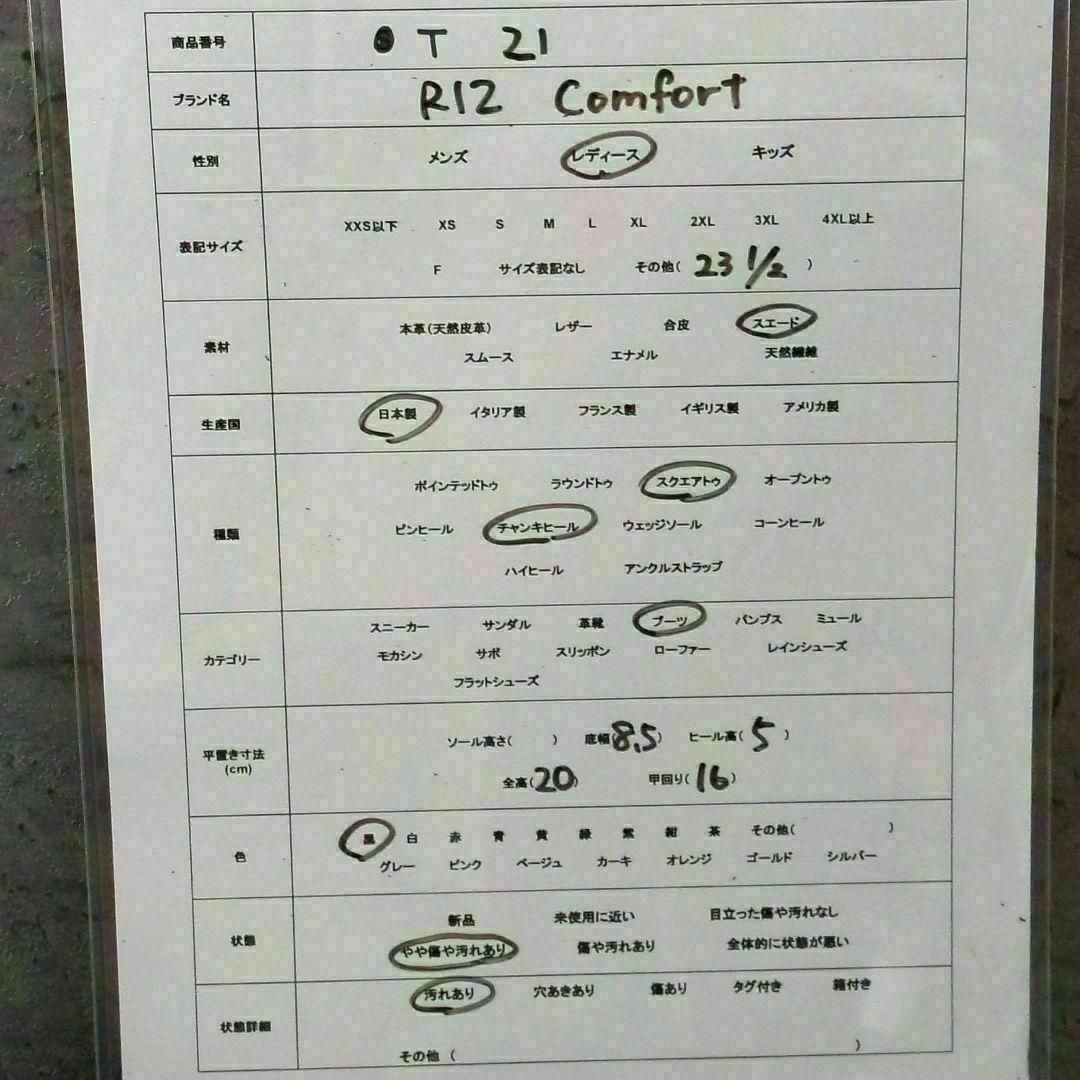 商品番号 T 21
ブランド名 R12 Comfort
性別 メンズ レディース キッズ
表記サイズ
XXS以下 XS S M L XL 2XL 3XL 4XL以上
F サイズ表記なし その他( 23 1/2 )
素材
本革(天然皮革) レザー 合皮 スエード
スムース エナメル 天然繊維
生産国 日本製 イタリア製 フランス製 イギリス製 アメリカ製
種類
ポインテッドトゥ ラウンドトゥ スクエアトゥ オープントゥ
ピンヒール チャンキヒール ウェッジソール コーンヒール
ハイヒール アンクルストラップ
カテゴリー
スニーカー サンダル 革靴 ブーツ パンプス ミュール
モカシン サボ スリッポン ローファー レインシューズ
フラットシューズ
平置き寸法
(cm)
ソール高さ( ) 底幅(8.5) ヒール高( 5 )
全高(20) 甲回り(16)
色
黒 白 赤 青 黄 緑 紫 紺 茶 その他( )
グレー ピンク ベージュ カーキ オレンジ ゴールド シルバー
状態
新品 未使用に近い 目立った傷や汚れなし
やや傷や汚れあり 傷や汚れあり 全体的に状態が悪い
状態詳細
汚れあり 穴あきあり 傷あり タグ付き 箱付き
その他 ( )